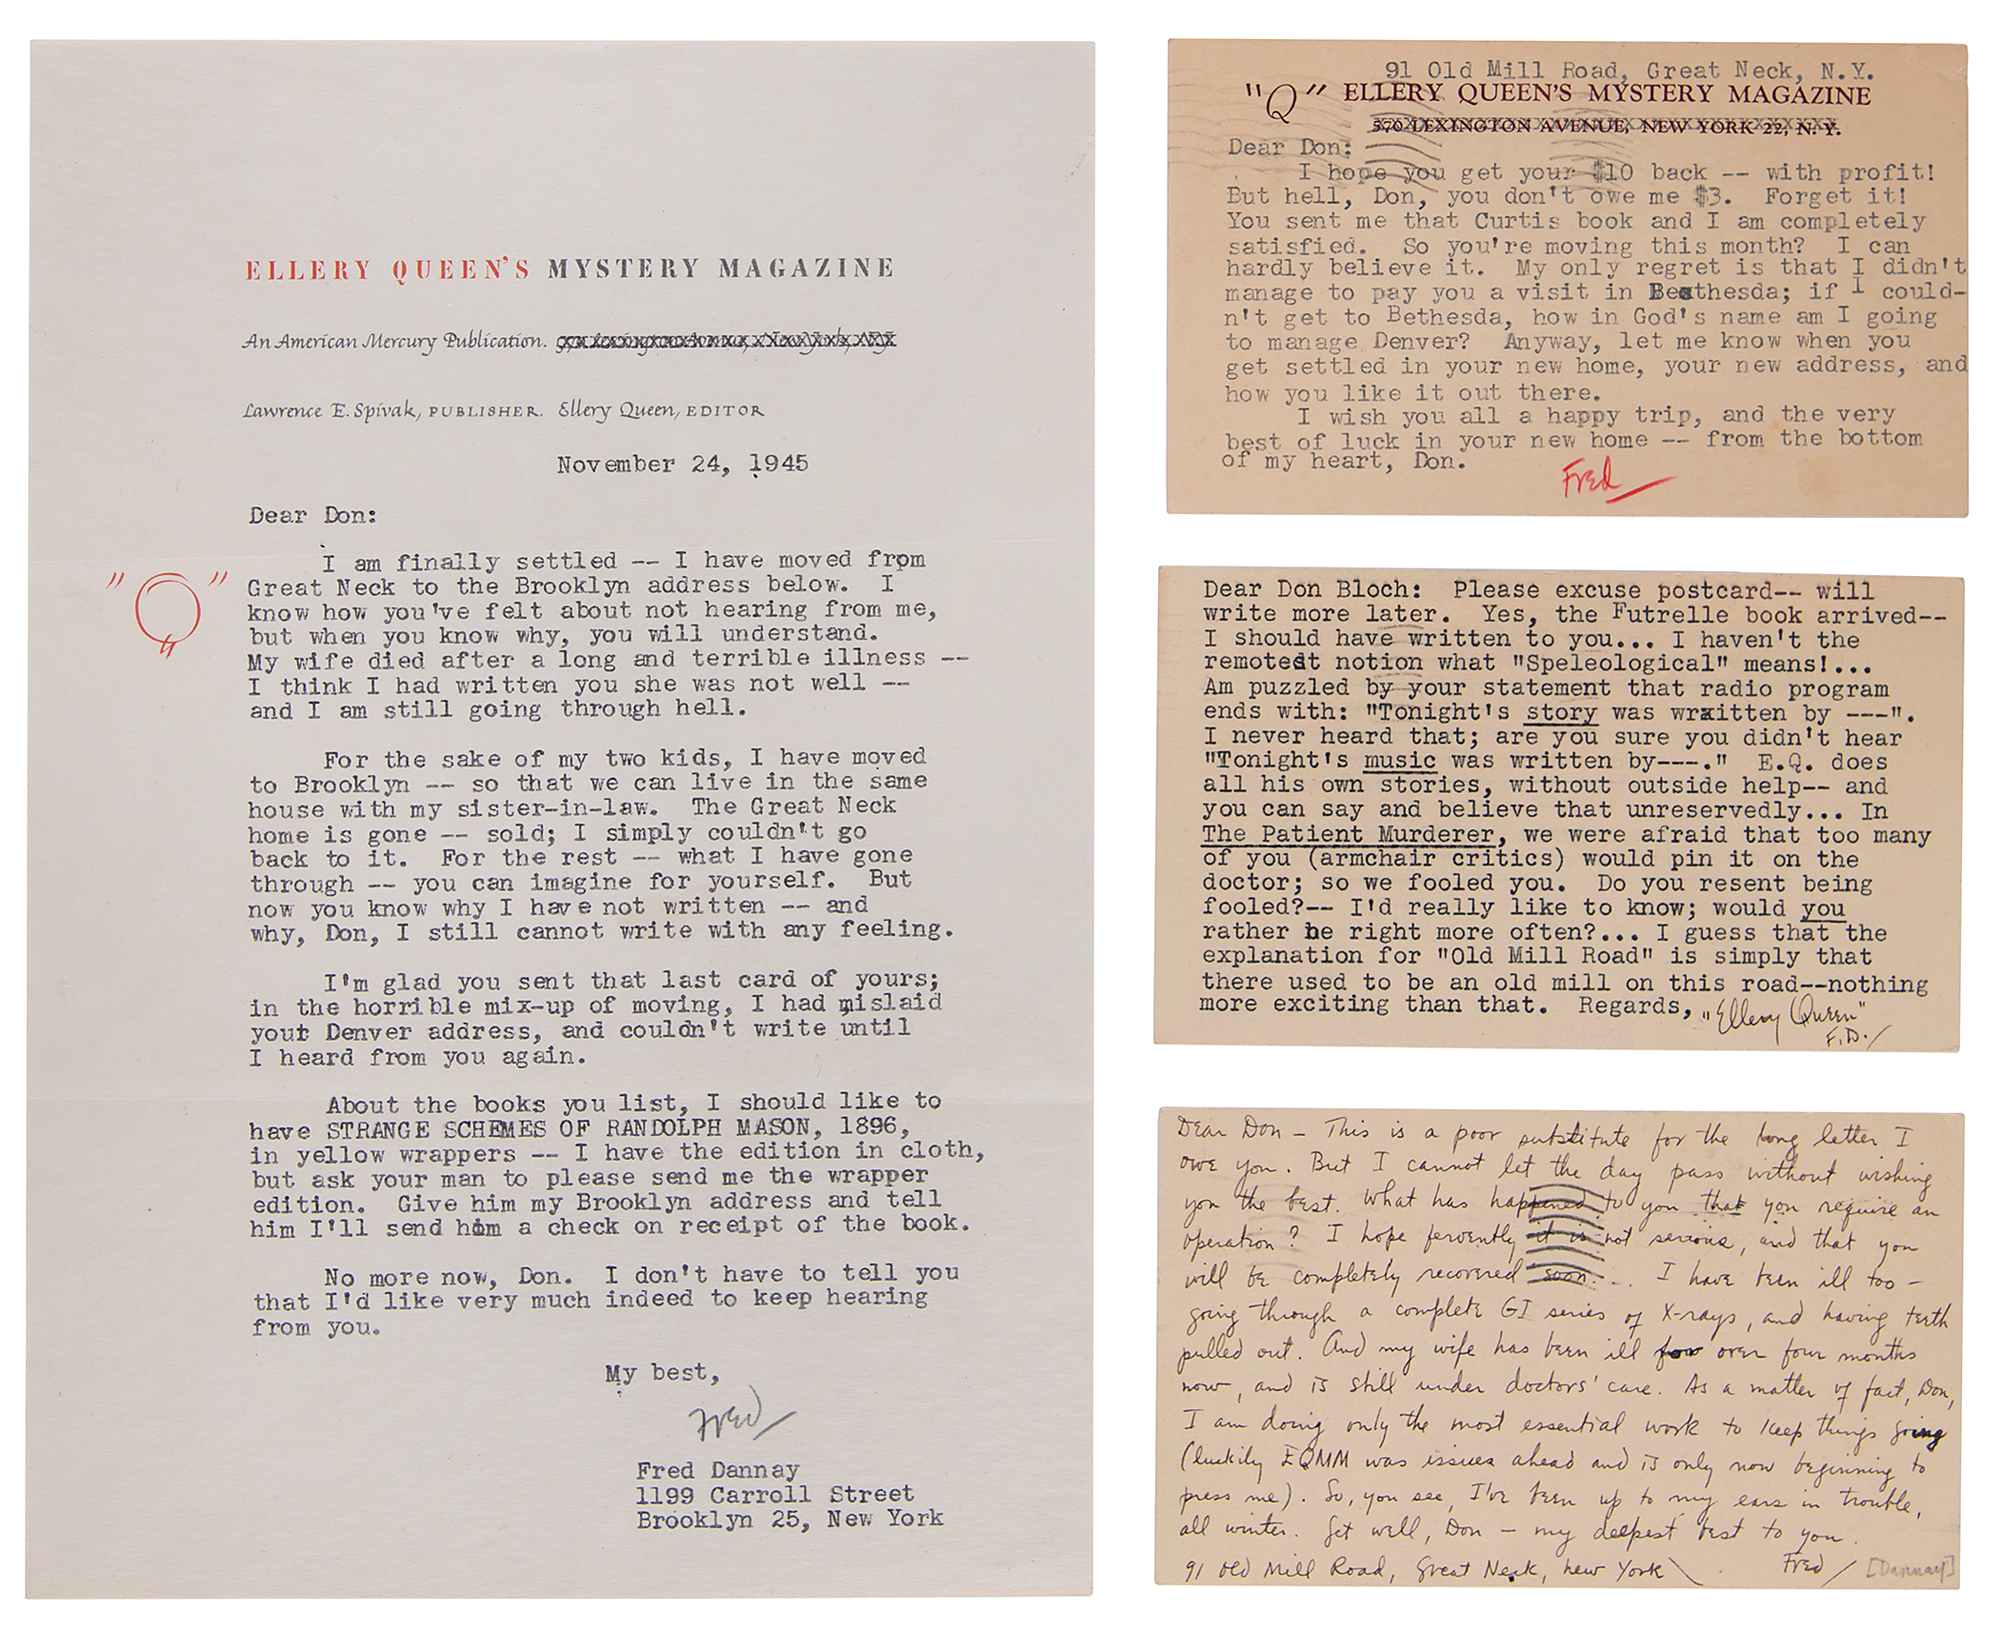 ELLERY QUEEN'S MYSTERY MAGAZINE
An American Mercury Publication.
Lawrence E. Spivak, PUBLISHER. Ellery Queen, EDITOR
November 24, 1945
Dear Don:
I am finally settled -- I have moved from
"Q"
Great Neck to the Brooklyn address below. I
know how you've felt about not hearing from me,
but when you know why, you will understand.
My wife died after a long and terrible illness --
I think I had written you she was not well --
and I am still going through hell.
For the sake of my two kids, I have moved
to Brooklyn -- so that we can live in the same
house with my sister-in-law. The Great Neck
home is gone -- sold; I simply couldn't go
back to it. For the rest -- what I have gone
through -- you can imagine for yourself. But
now you know why I have not written -- and
why, Don, I still cannot write with any feeling.
I'm glad you sent that last card of yours;
in the horrible mix-up of moving, I had mislaid
your Denver address, and couldn't write until
I heard from you again.
About the books you list, I should like to
have STRANGE SCHEMES OF RANDOLPH MASON, 1896,
in yellow wrappers -- I have the edition in cloth,
but ask your man to please send me the wrapper
edition. Give him my Brooklyn address and tell
him I'll send him a check on receipt of the book.
No more now, Don. I don't have to tell you
that I'd like very much indeed to keep hearing
from you.
My best,
Fred
Fred Dannay
1199 Carroll Street
Brooklyn 25, New York
91 Old Mill Road, Great Neck, N.Y.
"Q" ELLERY QUEEN'S MYSTERY MAGAZINE
570 LEXINGTON AVENUE, NEW YORK 22, N.Y.
Dear Don:
I hope you get your $10 back -- with profit!
But hell, Don, you don't owe me $3. Forget it!
You sent me that Curtis book and I am completely
satisfied. So you're moving this month? I can
hardly believe it. My only regret is that I didn't
manage to pay you a visit in Bethesda; if I could-
n't get to Bethesda, how in God's name am I going
to manage Denver? Anyway, let me know when you
get settled in your new home, your new address, and
how you like it out there.
I wish you all a happy trip, and the very
best of luck in your new home -- from the bottom
of my heart, Don.
Fred
Dear Don Bloch: Please excuse postcard-- will
write more later. Yes, the Futrelle book arrived--
I should have written to you... I haven't the
remotest notion what "Speleological" means!...
Am puzzled by your statement that radio program
ends with: "Tonight's story was wrxitten by ---".
I never heard that; are you sure you didn't hear
"Tonight's music was written by---." E.Q. does
all his own stories, without outside help-- and
you can say and believe that unreservedly... In
The Patient Murderer, we were afraid that too many
of you (armchair critics) would pin it on the
doctor; so we fooled you. Do you resent being
fooled?-- I'd really like to know; would you
rather be right more often?... I guess that the
explanation for "Old Mill Road" is simply that
there used to be an old mill on this road--nothing
more exciting than that. Regards, "Ellery Queen"
F.D./
Dear Don - This is a poor substitute for the long letter I
owe you. But I cannot let the day pass without wishing
you the best. What has happened to you that you require an
operation? I hope fervently it is not serious, and that you
will be completely recovered soon... I have been ill too -
going through a complete GI series of X-rays, and having teeth
pulled out. And my wife has been ill for over four months
now, and is still under doctors' care. As a matter of fact, Don,
I am doing only the most essential work to keep things going
(luckily EQMM was issues ahead and is only now beginning to
press me). So, you see, I've been up to my ears in trouble,
all winter. Get well, Don - my deepest best to you.
91 Old Mill Road, Great Neck, New York Fred/ [Dannay]